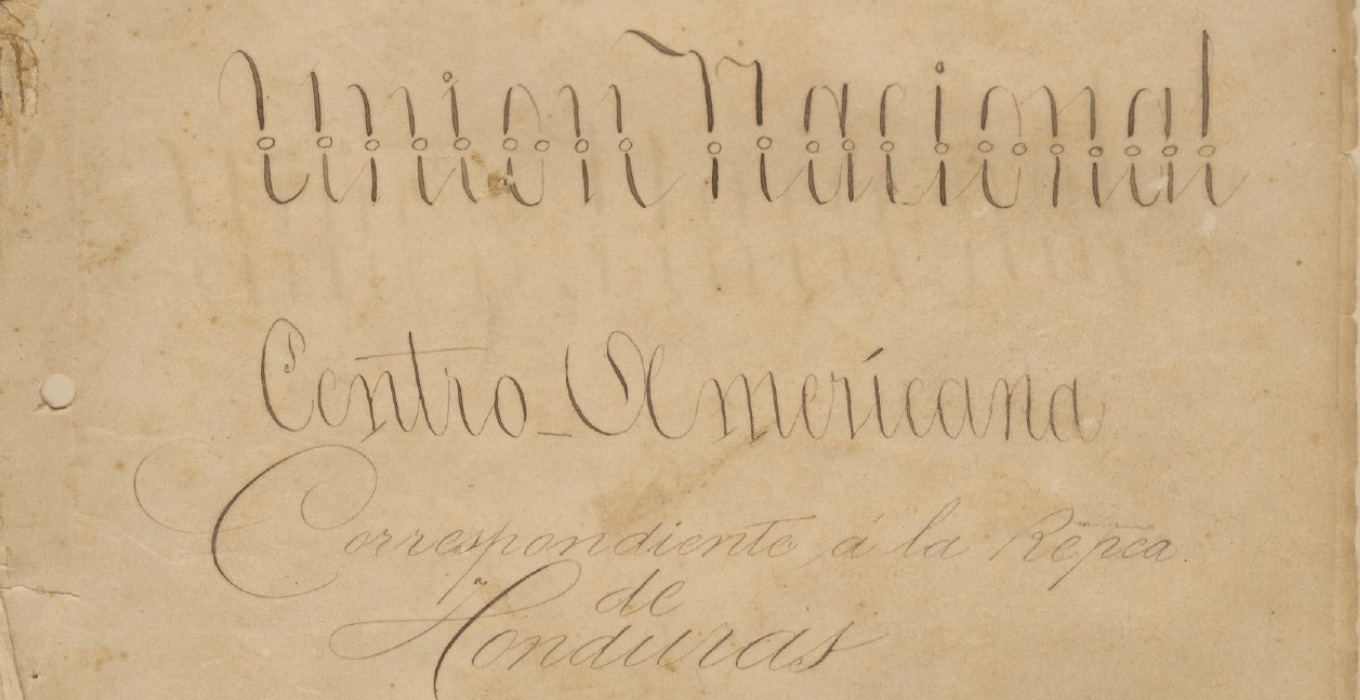 Union Nacional
Centro-Americana
Correspondiente á la Repca.
de
Honduras